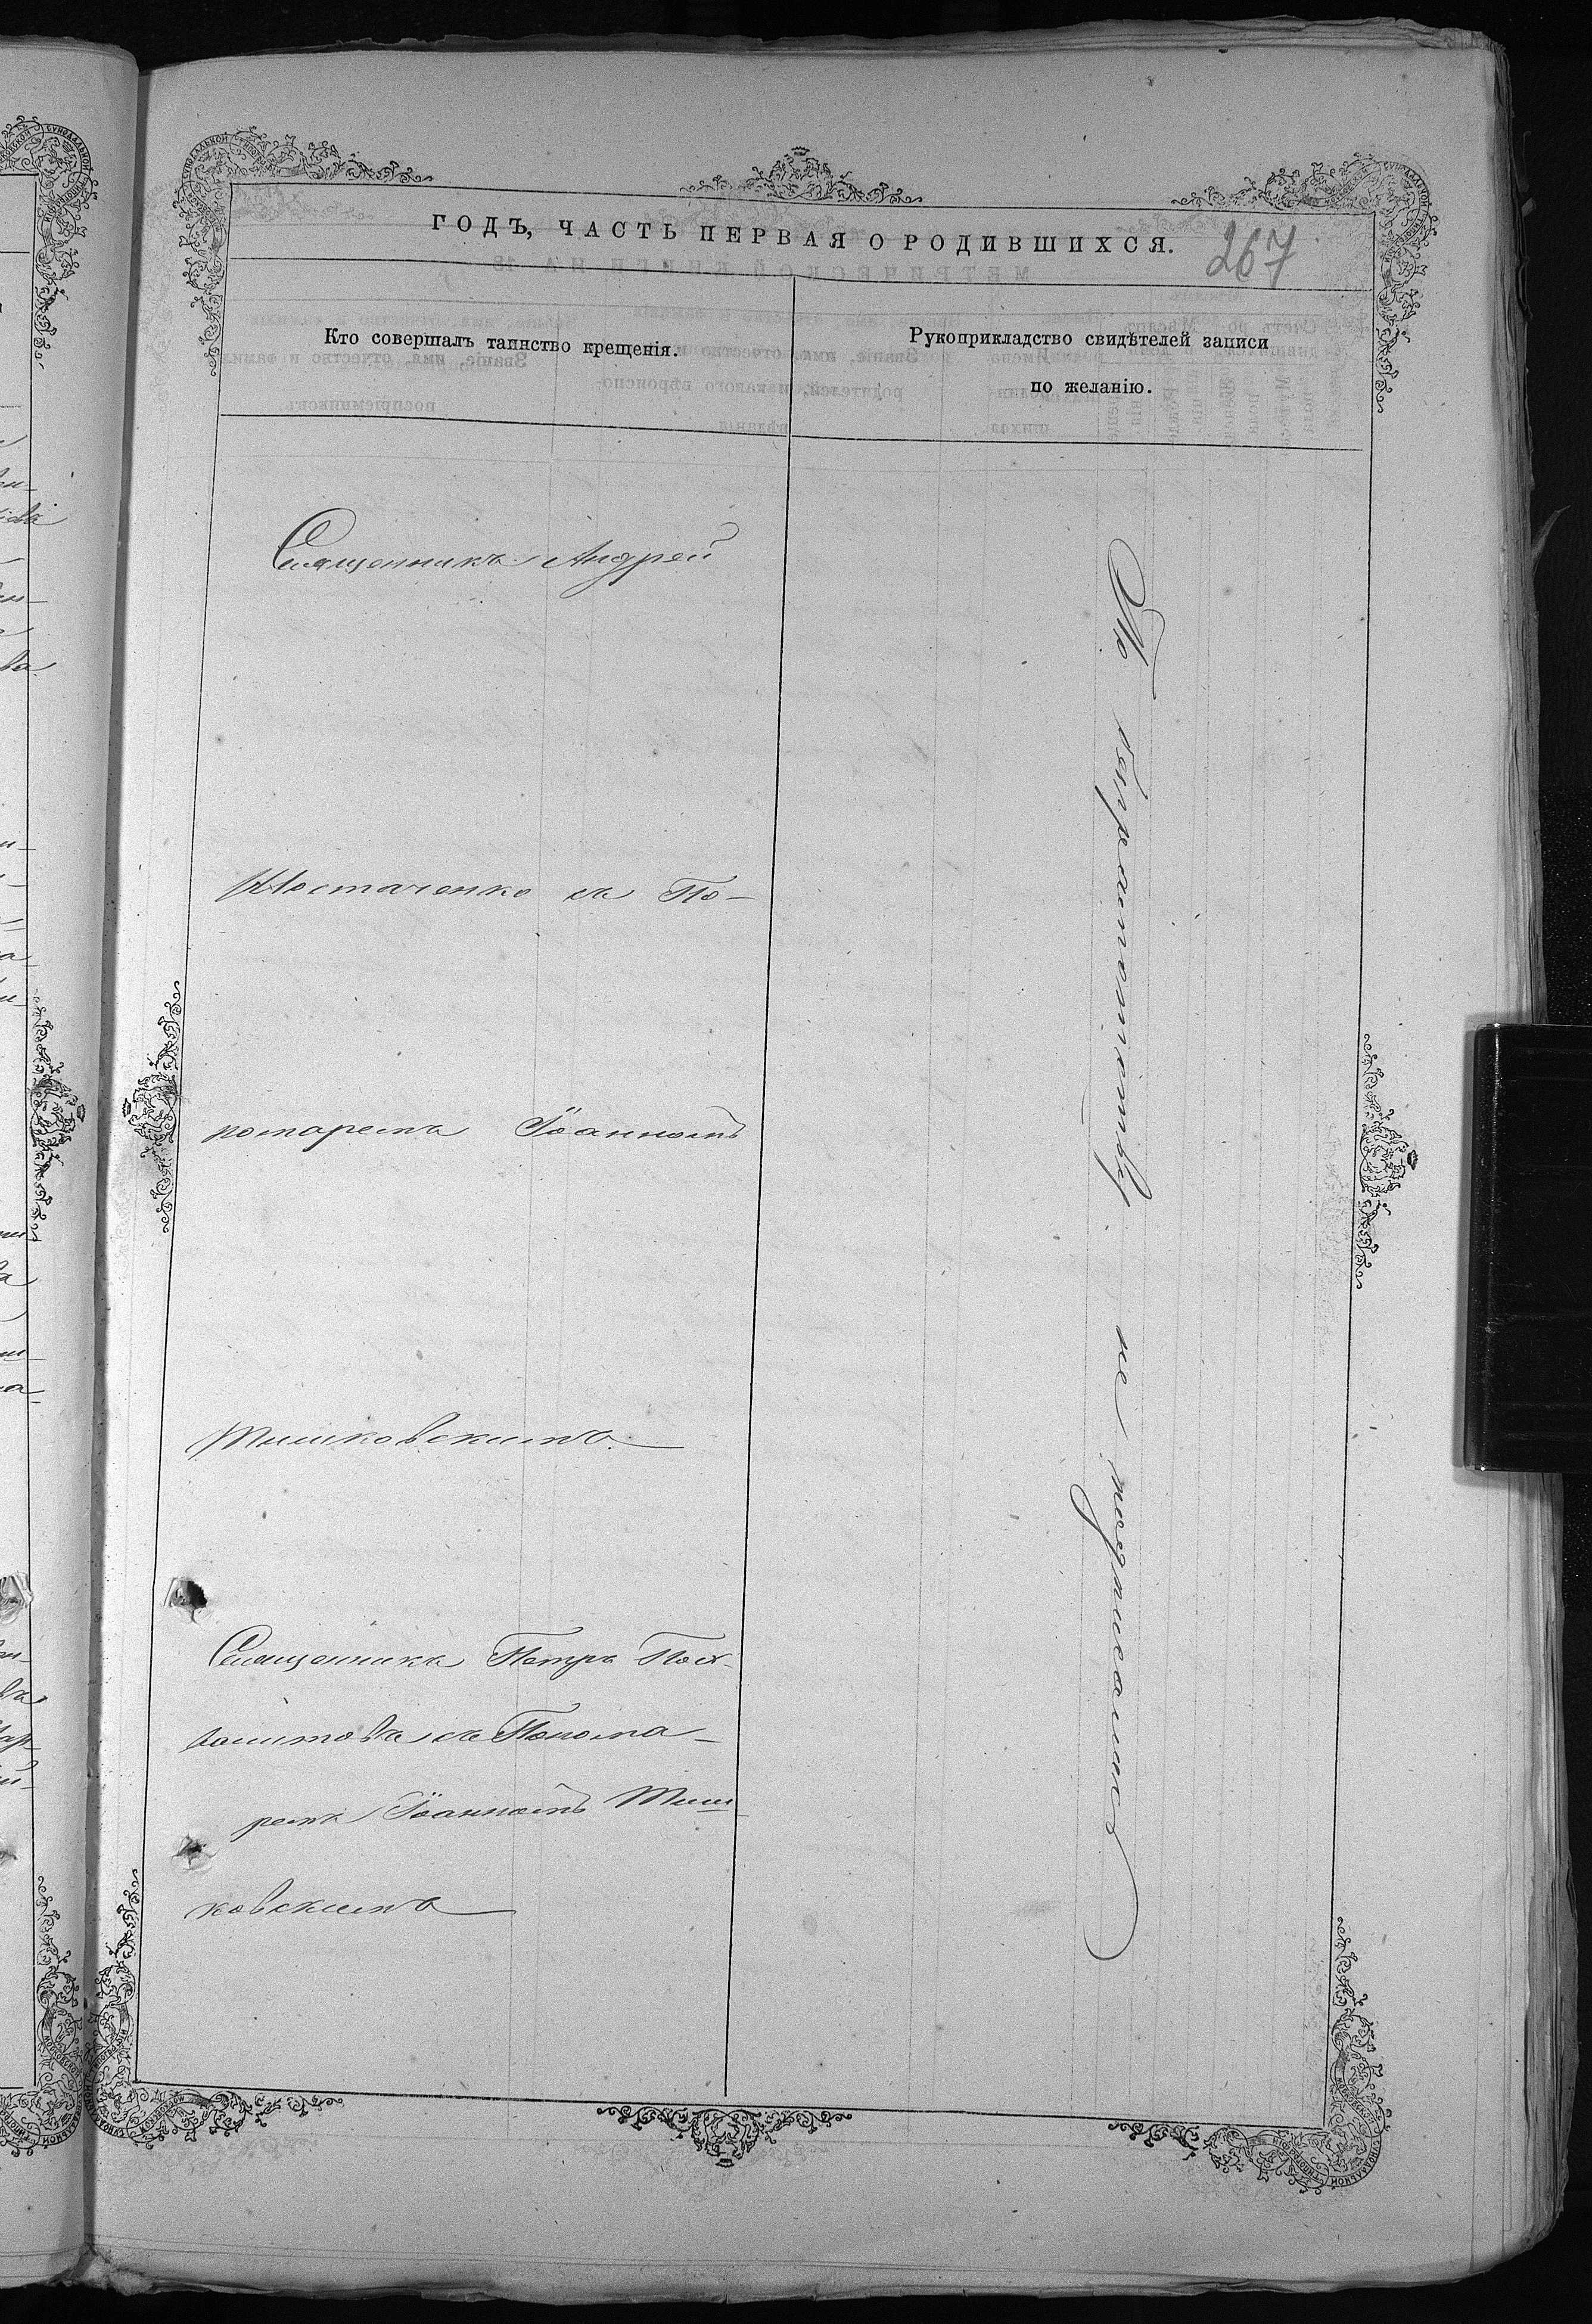 ГОДЪ, ЧАСТЬ ПЕРВАЯ О РОДИВШИХСЯ.
267
Кто совершалъ таинство крещенія.
Рукоприкладство свидѣтелей записи
по желанію.
Священникъ Андрей
съ По-
номаремъ Іоанномъ
Тишковскимъ.
Священникъ Петръ
съ Понома-
ремъ Іоанномъ Тиш-
ковскимъ
По безграмотству не подписались